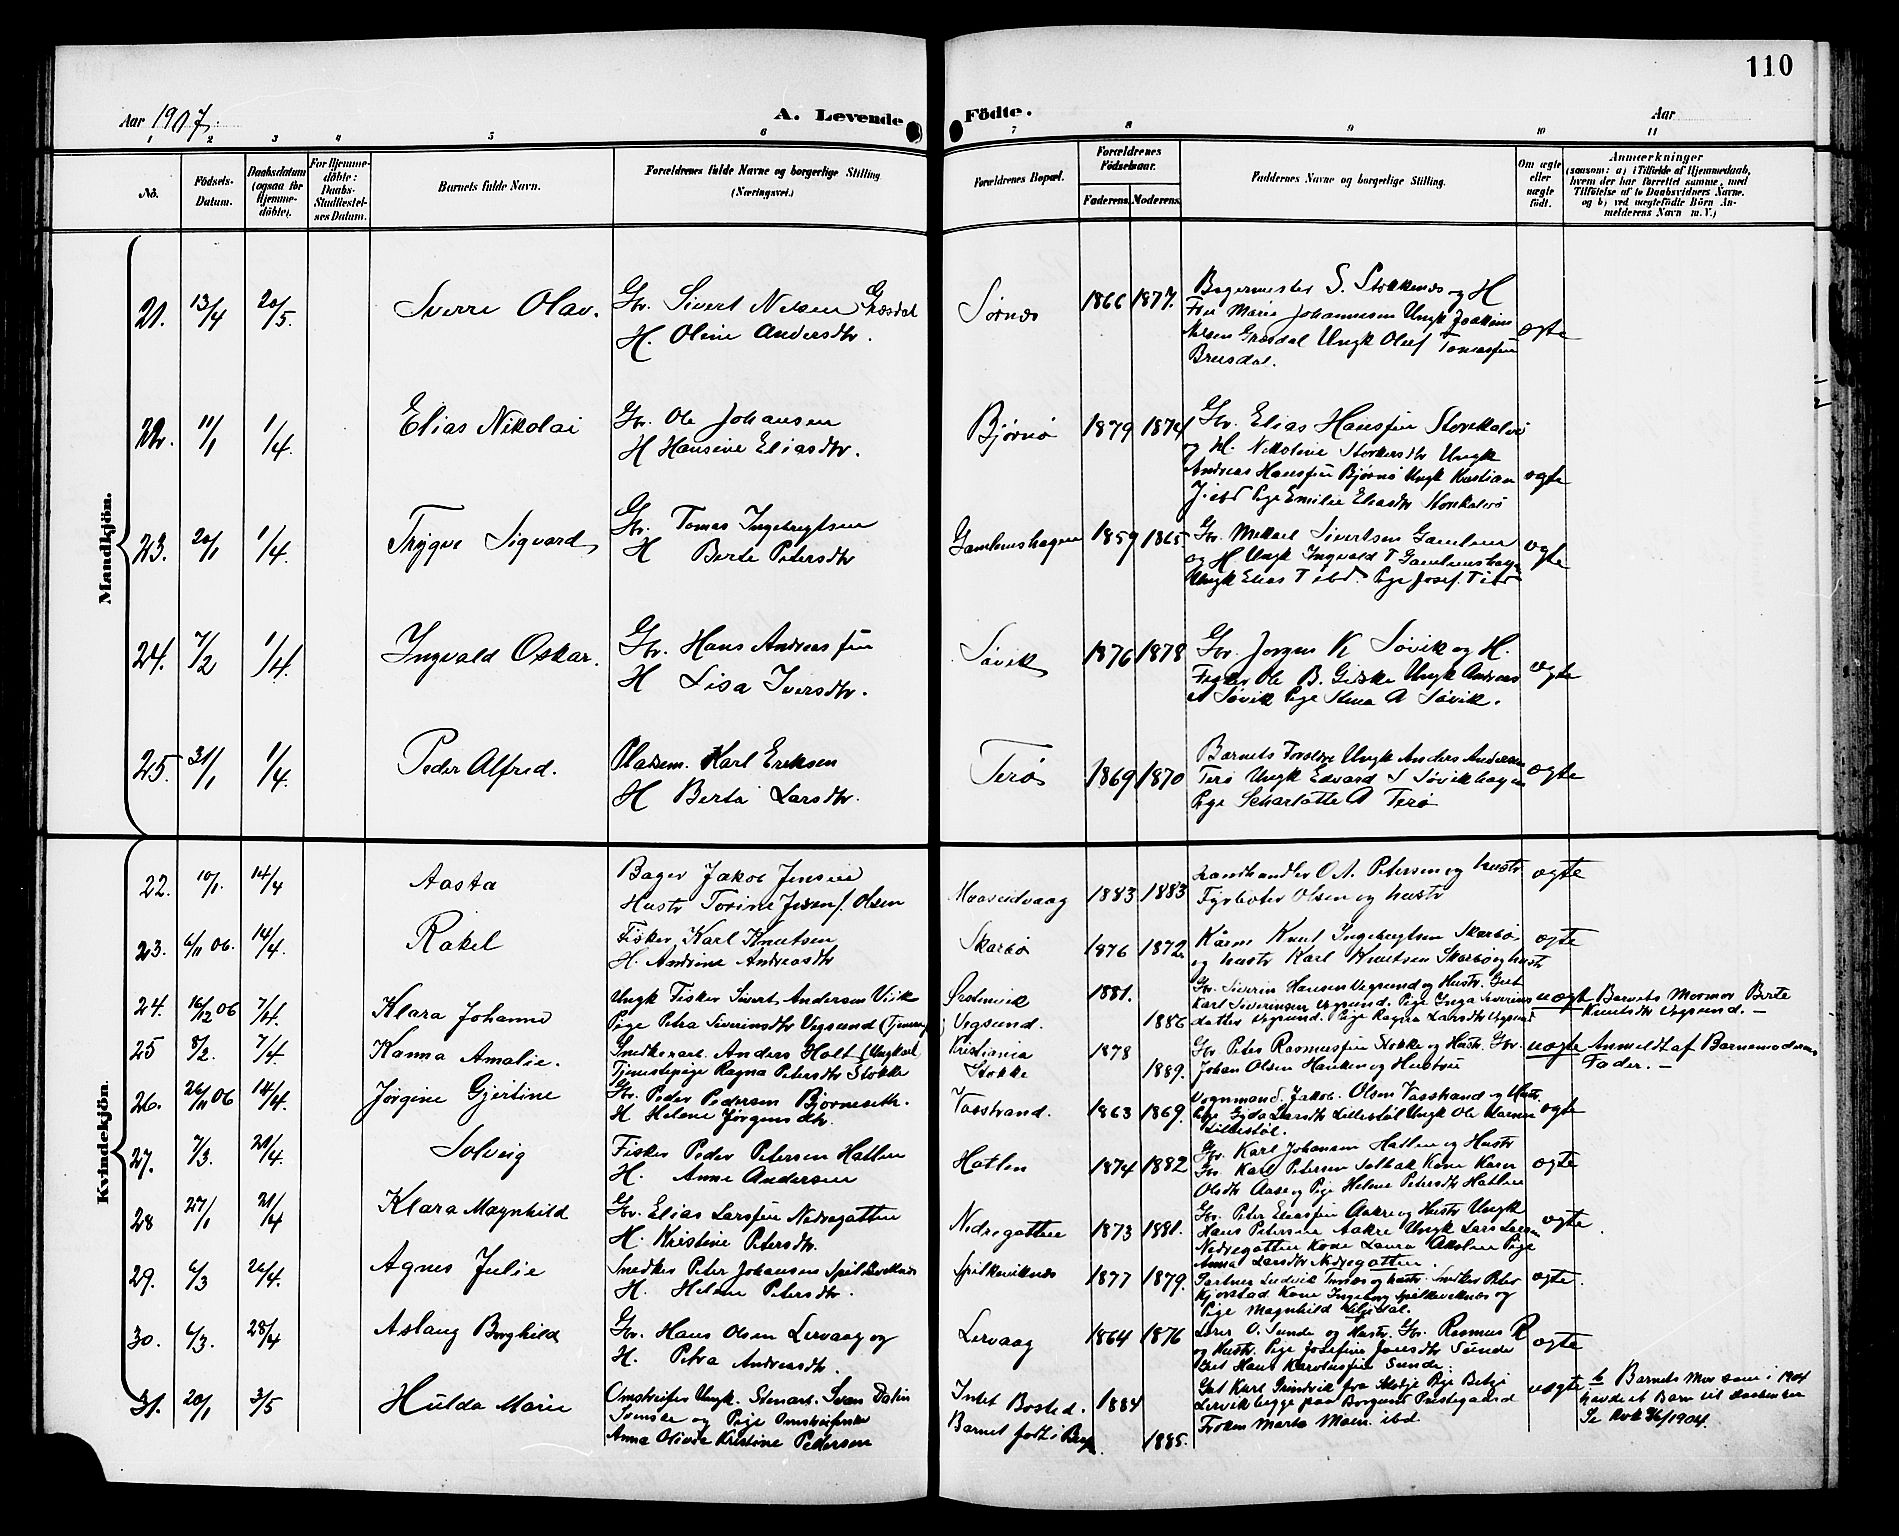 110
Aar 1907.
A. Levende
Födte.
Aar
1
2
3
4
5
6
7
8
9
10
11
No.
Födsels-
Datum.
Daabsdatum
(ogsaa for
Hjemme-
döbte).
For Hjemme-
döbte:
Daabs-
Stadfæstel-
ses Datum.
Barnets fulde Navn.
Forældrenes fulde Navne og borgerlige Stilling
(Næringsvei.)
Forældrenes Bopæl.
Forældrenes
Födselsaar.
Faderens.
Moderens.
Faddernes Navne og borgerlige Stilling.
Om ægte
eller
uægte
født.
Anmærkninger
(saasom: a) i Tilfælde af Hjemmedaab,
hvem der har forrettet samme, med
Tilføielse af to Daabsvidners Navne,
og b) ved uægtefödte Börn An-
melderens Navn m. V.)
Mandkjön.
21. 13/4 20/5. Sverre Olav. Gbr. Sivert Nelsen Græsdal
H. Oline Andersdtr.
Sørnes 1866 1877.
Bagermester S. Stokkenes og H
Fru Marie Johannesen Ungk Joakim
Nelsen Græsdal Ungk Oluf Tomassen
Brusdal.
ægte
22. 11/1 1/4. Elias Nikolai Gbr. Ole Johansen
H Hansine Eliasdtr.
Bjørnø 1879 1874
Gbr. Elias Hanssen Storekalvø
og H. Nikoline Ungk
Andreas Hanssen Bjørnø Ungk Kristian
J. ibd Pige Emilie Eliasdtr Storekalvø
ægte
23. 20/1 1/4. Trygve Sigvard Gbr. Tomas Ingebrigtsen
H Berte Petersdtr
Gamlemshagen 1859 1865
Gbr. Mikael Sivertsen Gamlem
og H Ungk Ingvald T Gamlemshagen
Ungk Elias T ibd. Pige Josef. T ibd
ægte
24. 7/2 1/4. Ingvald Oskar. Gbr. Hans Andreassen
H Lisa Iversdtr.
Søvik 1876 1878
Gbr. Jørgen K Søvik og H.
Fisker Ole B. Giske Ungk Andreas
A Søvik Pige A Søvik.
ægte
25. 31/1 1/4. Peder Alfred. Pladsm. Karl Eriksen
H Berta Larsdtr.
Terø 1869 1870
Barnets Forældre Ungk Anders Andersen
Terø Ungk Edvard S Søvikhagen
Pige Scharlotte A Terø
ægte
Kvindekjön.
22. 10/1. 14/4 Aasta Bager Jakob Jensen
Hustr Torine Jensen f. Olsen
Maaseidvaag 1883 1883
Landhandler O. A. Petersen og hustr
Fyrbøter Olsen og hustr
ægte
23. 6/11 06. 14/4. Rakel Fisker Karl Knutsen
H. Andrine Andreasdtr
Skarbø 1876 1872
Kårm Knut Ingebrigtsen Skarbø
og hustr Karl Knutsen Skarbø og hustr
ægte
24. 16/12 06 7/4. Klara Johanne Ungk Fisker Sivert Andersen Viik
Pige Petra Severinsdtr Vegsund (Tjener)
Ørstenvik
Vegsund.
1881.
1886
Gbr. Severin Hansen Vegsund og Hustr. Gut
Karl Severinsen Vegsund. Pige Inga Severins
datter Vegsund. Pige Ragna Larsdtr Vegsund
uægte Barnets Mormor Berte
Knutsdtr Vegsund. –
25 8/2. 7/4. Kanna Amalie. Snedkerarb. Anders Holt (Ungkarl
Tjenestepige Ragna Petersdtr Stokke
Kristiania
Stokke
1878
1889.
Gbr. Peter Rasmussen Stokke og Hustr. Gbr.
Johan Olsen Hanken og Hustru
uægte Anmeldt af Barnemoderens
Fader. –
26. 26/11 06 14/4. Jørgine Gjertine Gbr. Peder Pedersen Bjørneseth.
H Helene Jørgensdtr.
Vasstrand. 1863 1869.
Vognmand Jakob Olsen Vasstrand og Hustr.
Pige Gyda Larsdtr Lillestøl Ungk Ole
Lillestøl.
ægte
27. 7/3. 21/4. Solveig Fisker Peder Petersen Hatlen
H. Anne Andersen
Hatlen 1874 1882
Gbr. Karl Johansen Hatlen og Hustr
Gbr. Karl Petersen Solbak Kone Karen
Olsdtr Aase og Pige Helene Petersdtr Hatlen
ægte
28 27/1 21/4 Klara Magnhild Gbr. Elias Larssen Nedregotten
H. Kristine Petersdtr.
Nedregotten 1873 1881.
Gbr. Peter Eliassen Aakre og Hustr Ungk
Hans Petersen Aakre Ungk Lars Larsen
Nedregotten Kone Laura Pige
Anna Larsdtr Nedregotten.
ægte
29. 6/3 26/4. Agnes Julie Snedker Peter Johansen Spilkeviknes
H. Helene Petersdtr.
Spilkeviknes 1877 1879.
Gartner Ludvik og hustr. Snedker Peter
Kjørstad Kone Ingeborg Spilkeviknes og
Pige Magnhild
ægte.
30. 6/3. 28/4 Aslaug Borghild Gbr. Hans Olsen Lervaag og
H. Petra Andreasdtr.
Lervaag 1864 1876
Lærer O. Sunde og Hustr. Gbr. Rasmus R
og Hustr. Pige Josefine Sunde
Gut Hans Karolussen Sunde.
ægte
31. 20/1 3/5 Hulda Marie Omstreifer Ungk. Stenarb. Svan Dalin
Svenske og Pige Omstreiferske
Anna Olivie Kristine Pedersen
Intet Bosted.
Barnet født i Berg.
1884
1885.
Gut Karl Grindvik fra Skodje Pige Betzi
Lervik begge paa Borgund Prestegaard
Frøken Marta Moen ibd
uægte b Barnets Mor som i 1904
havde et Barn til daaben her
Se